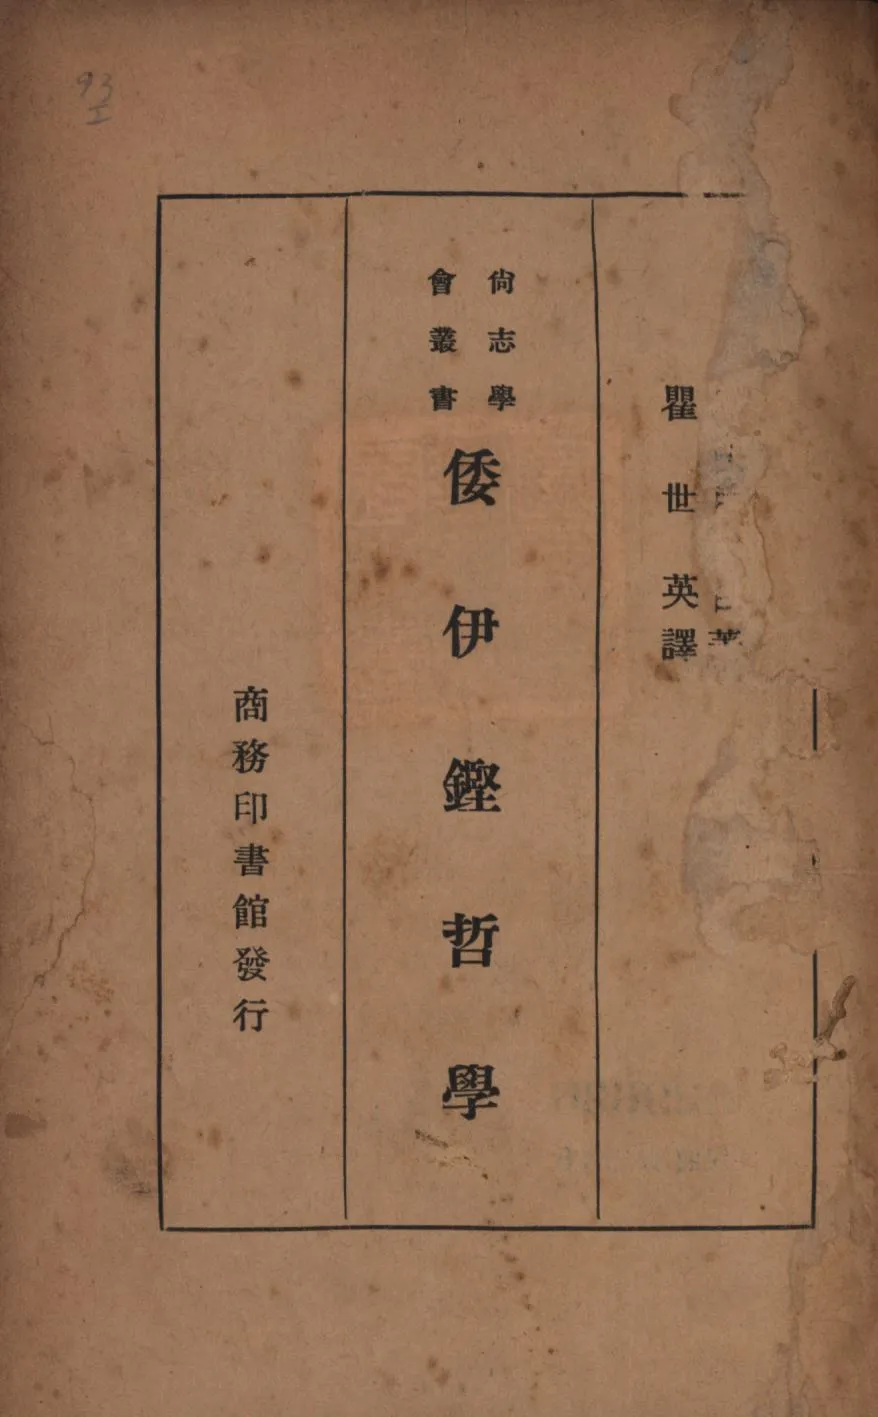 瞿世英譯
尙志學
會叢書
倭伊鏗哲學
商務印書館發行
93
I